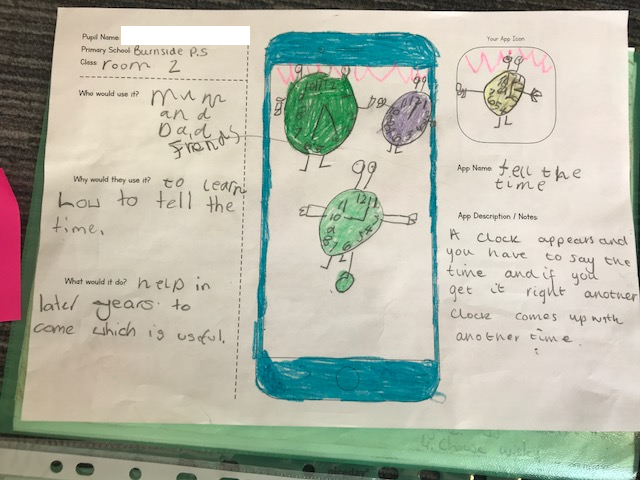 Pupil Name:
Primary School: Burnside P.S
Class: room 2
Who would use it? Mum
and
Dad
friends
Why would they use it? to learn
how to tell the
time.
What would it do? help in
later years to
come which is useful.
Your App Icon
App Name: tell the
time
App Description / Notes
A clock appears and
you have to say the
time and if you
get it right another
clock comes up with
another time.